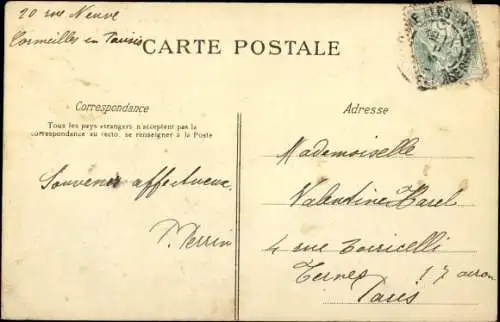 20 rue Neuve
Cormeilles en Parisis
CARTE POSTALE
Correspondance
Adresse
Tous les pays étrangers n'acceptent pas la
correspondance au recto, se renseigner à la Poste
Mademoiselle
Souvenir affectueux.
Valentine Harel
P. Perrin
4 rue Torricelli
Ternes 17 arron
Paris